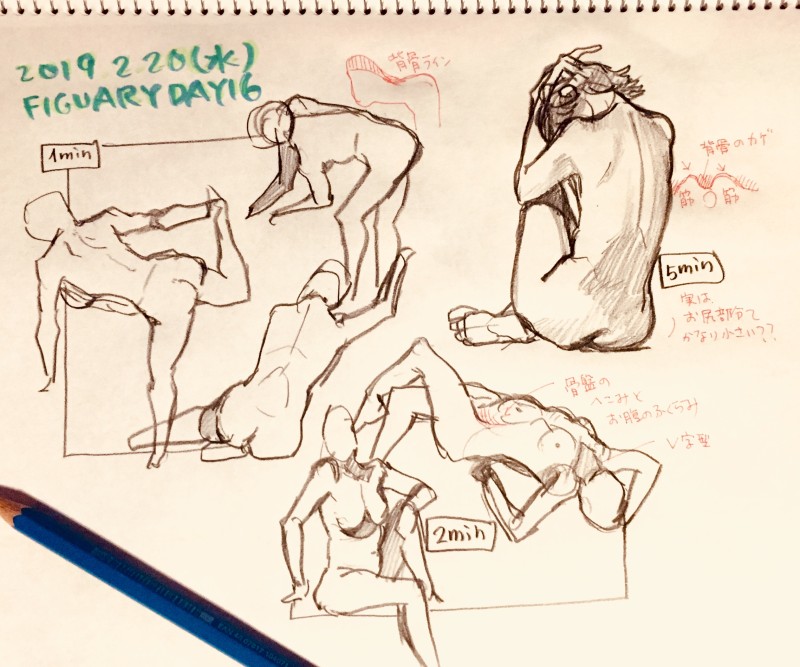 2019 2 20(水)
FIGUARY DAY16
背骨ライン
1min
背骨のカゲ
筋 筋
5min
実は、
お尻部分て
かなり小さい??
骨盤の
へこみと
お腹のふくらみ
V字型
2min